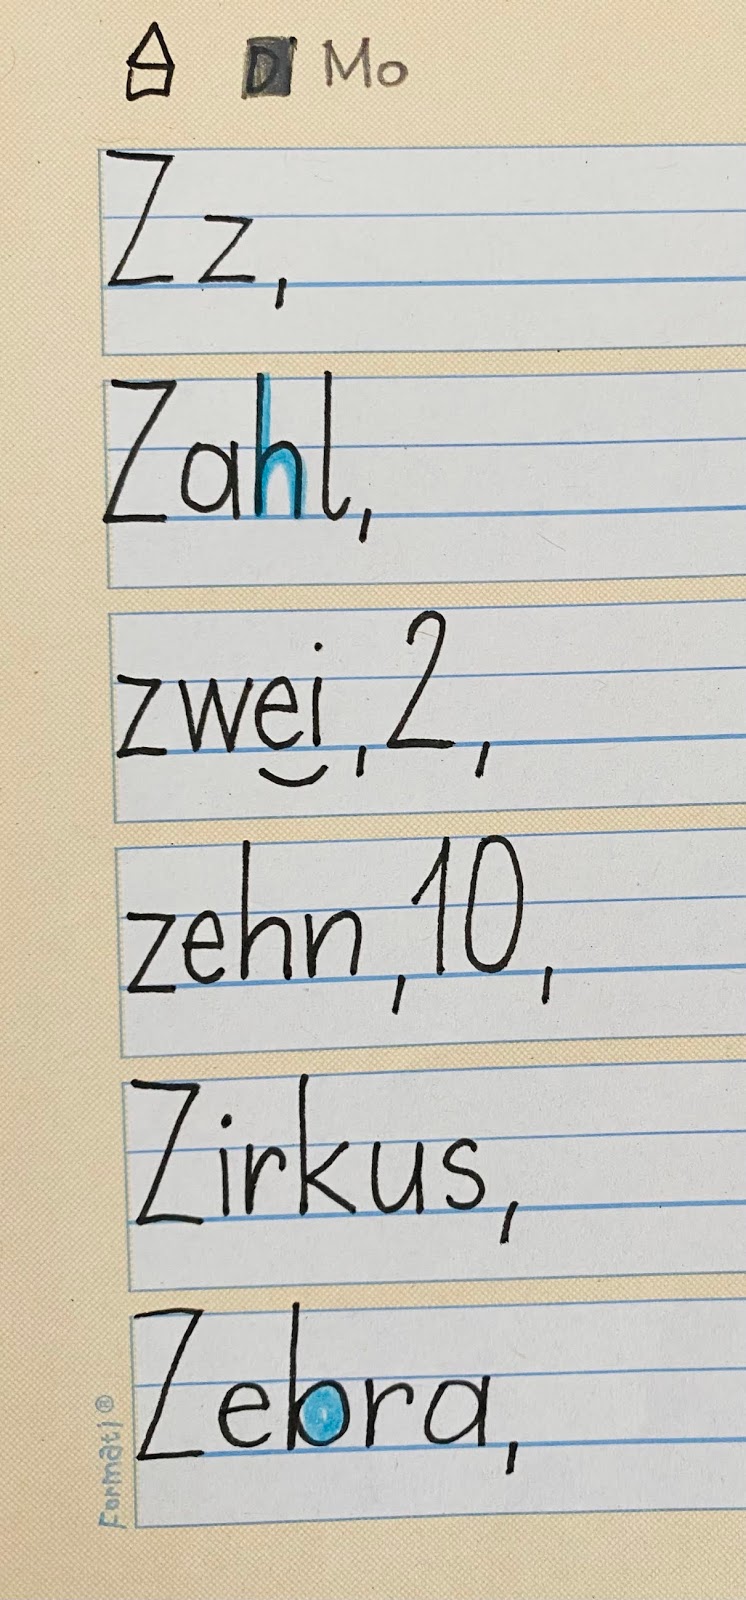 D Mo
Zz,
Zahl,
zwei, 2,
zehn, 10,
Zirkus,
Zebra,
Formati®